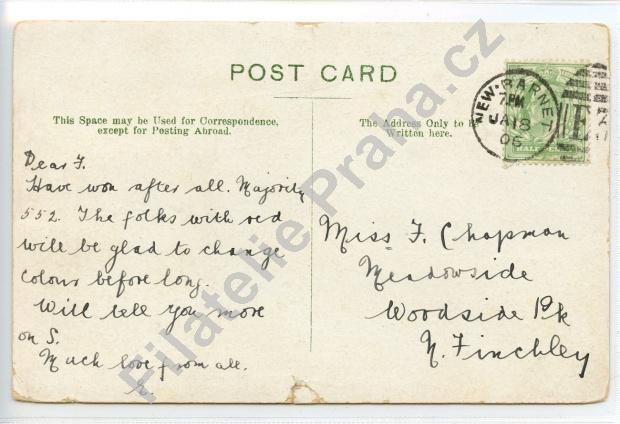 POST CARD
This Space may be Used for Correspondence,
except for Posting Abroad.
The Address Only to be
Written here.
NEW-BARNET
7PM
JA 18
06
HALF
Dear F.
Have won after all. Majority
552. The folks with red
will be glad to change
colours before long.
Will tell you more
on S.
Much love from all.
Miss F. Chapman
Meadowside
Woodside Pk
N. Finchley
Filatelie Praha.cz